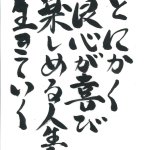 とにかく
良心が喜び
楽しめる人生
生きていく